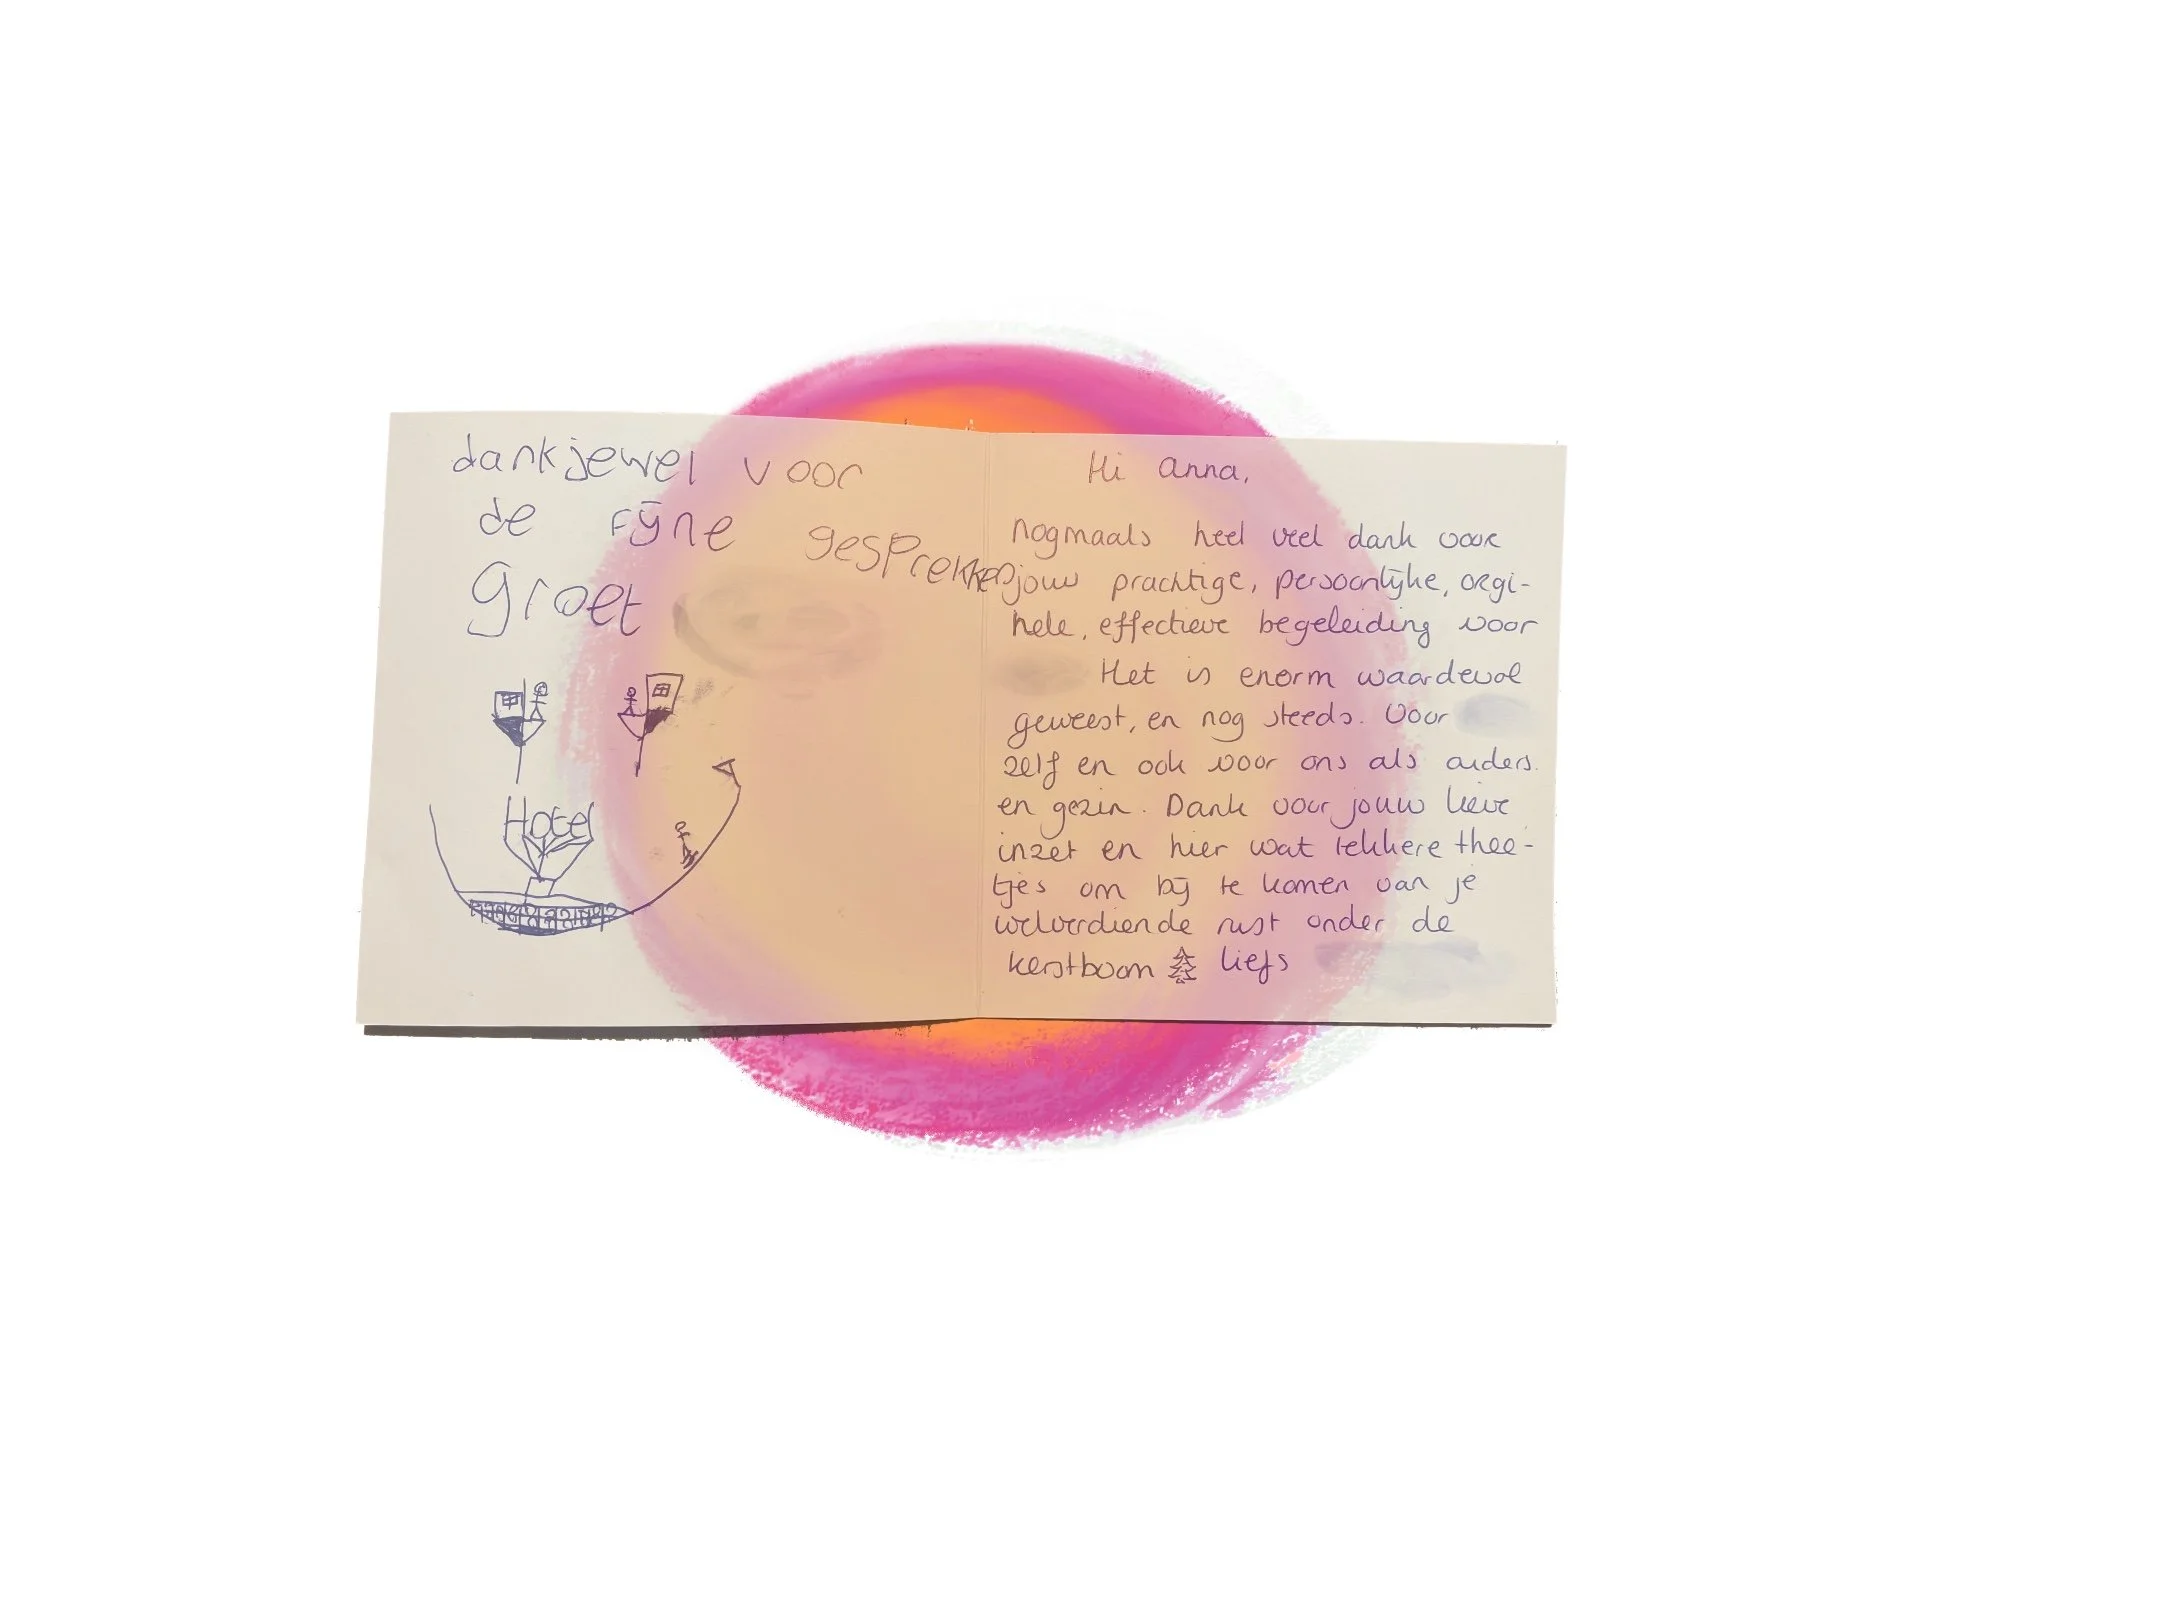 dankjewel voor
de fijne gesprekken
groet
Hotel
Hi anna,
nogmaals heel veel dank voor
jouw prachtige, persoonlijke, orgi-
nele, effectieve begeleiding voor
Het is enorm waardevol
geweest, en nog steeds. Voor
zelf en ook voor ons als ouders.
en gezin. Dank voor jouw lieve
inzet en hier wat lekkere thee-
tjes om bij te komen van je
welverdiende rust onder de
kerstboom liefs